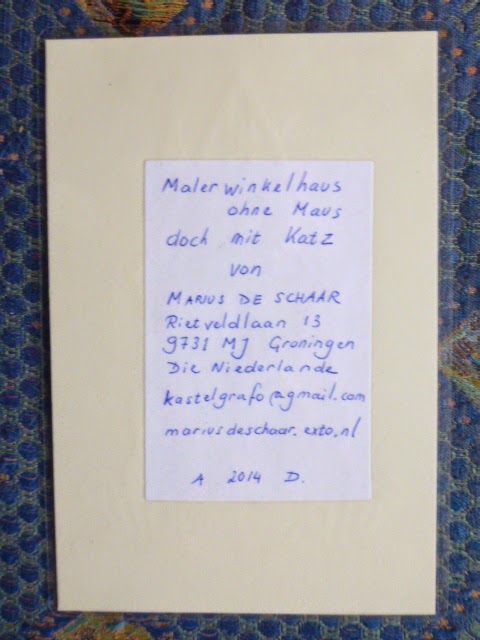 Malerwinkelhaus
ohne Maus
doch mit Katz
von
MARIUS DE SCHAAR
Rietveldlaan 13
9731 MJ Groningen
Die Niederlande
kastelgrafo@gmail.com
mariusdeschaar.exto.nl
A 2014 D.